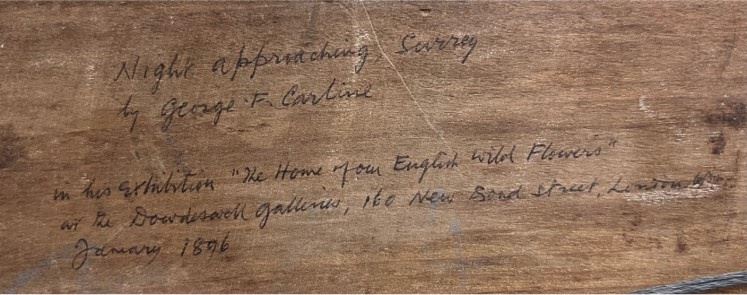 Night approaching, Surrey
by George F. Carline
in his exhibition "The Home of our English Wild Flowers"
at the Dowdeswell Galleries, 160 New Bond Street, London
January 1896